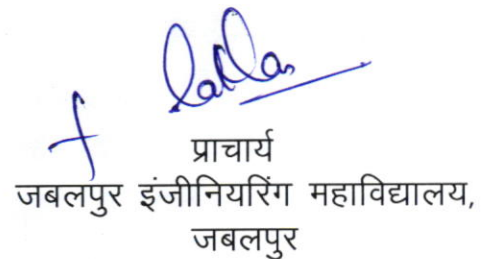 प्राचार्य
जबलपुर इंजीनियरिंग महाविद्यालय,
जबलपुर